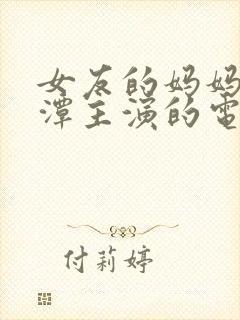 女友的妈妈
潭主演的电
付莉婷